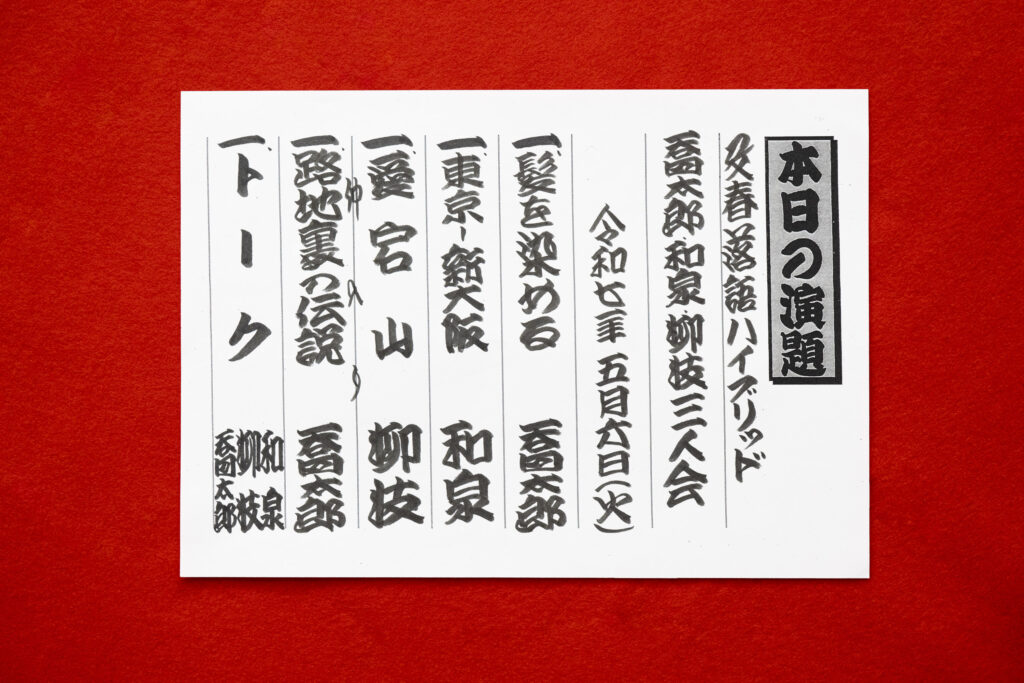 本日の演題
文春落語ハイブリッド
喬太郎 和泉 柳枝 三人会
令和七年 五月六日(火)
一、髪を染める 喬太郎
一、東京ー新大阪 和泉
一、愛宕山 柳枝
仲入り
一、路地裏の伝説 喬太郎
一、トーク 和泉 柳枝 喬太郎